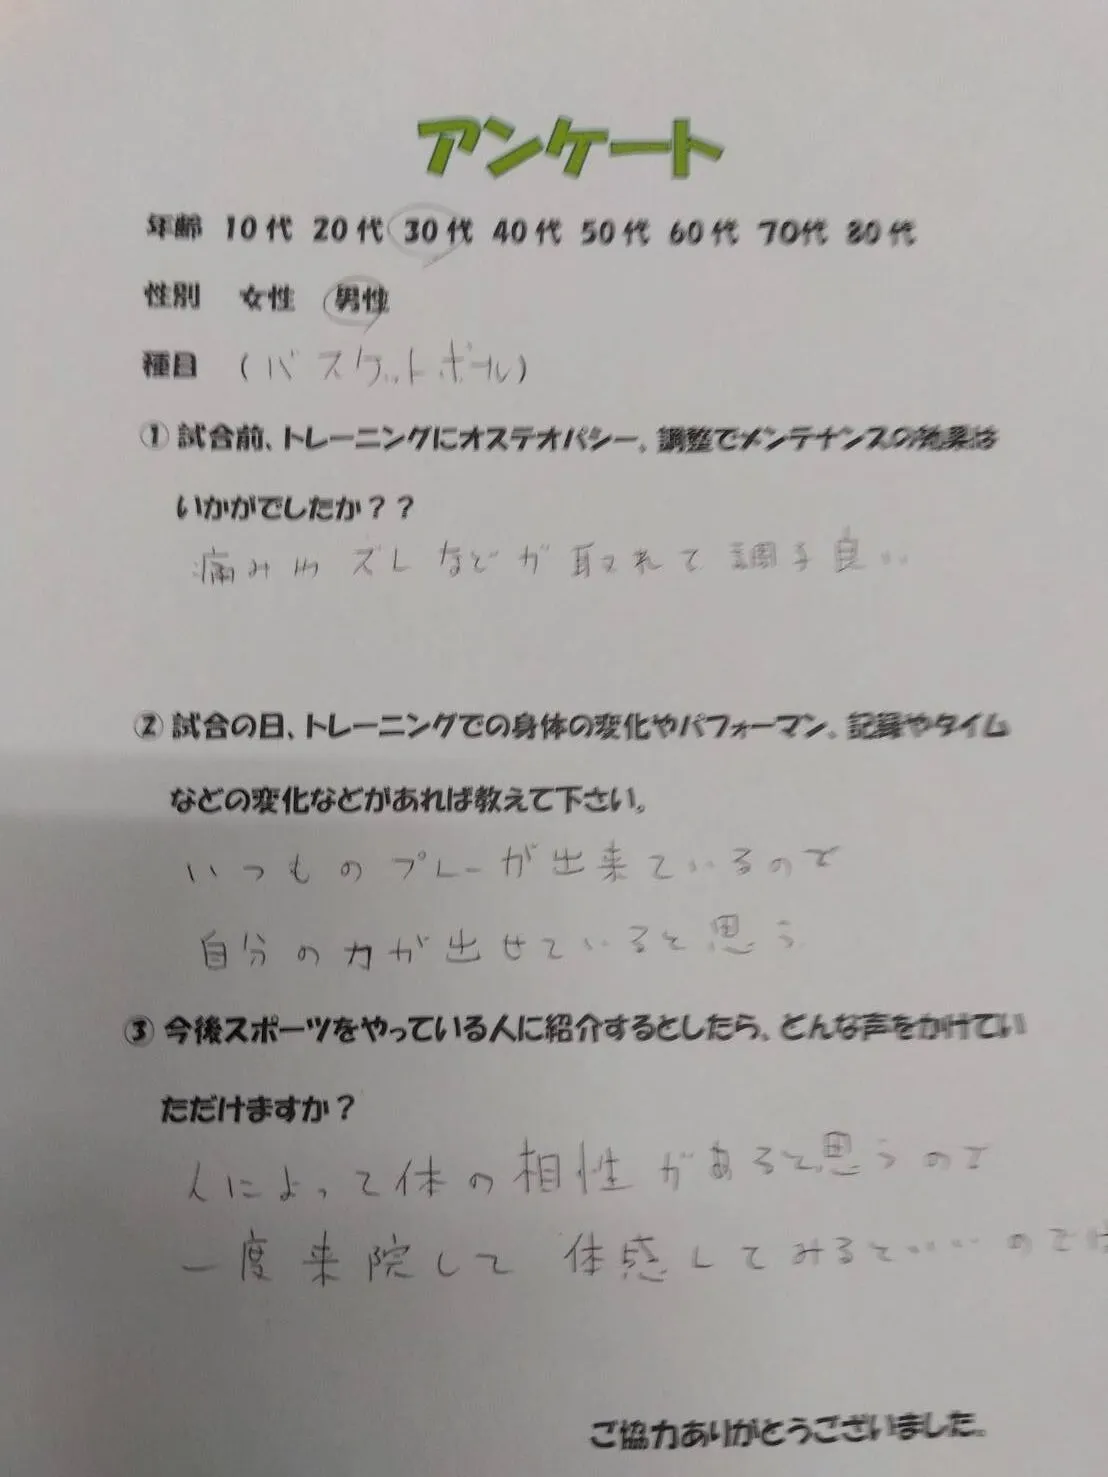 アンケート
年齢 10代 20代 30代 40代 50代 60代 70代 80代
性別 女性 男性
種目 (バスケットボール)
① 試合前、トレーニングにオステオパシー、調整でメンテナンスの効果は
いかがでしたか？？
痛みやズレなどが取れて調子良い
② 試合の日、トレーニングでの身体の変化やパフォーマン、記録やタイム
などの変化などがあれば教えて下さい。
いつものプレーが出来ているので
自分の力が出せていると思う
③ 今後スポーツをやっている人に紹介するとしたら、どんな声をかけてい
ただけますか？
人によって体の相性があると思うので
一度来院して体感してみるといいのでは
ご協力ありがとうございました。